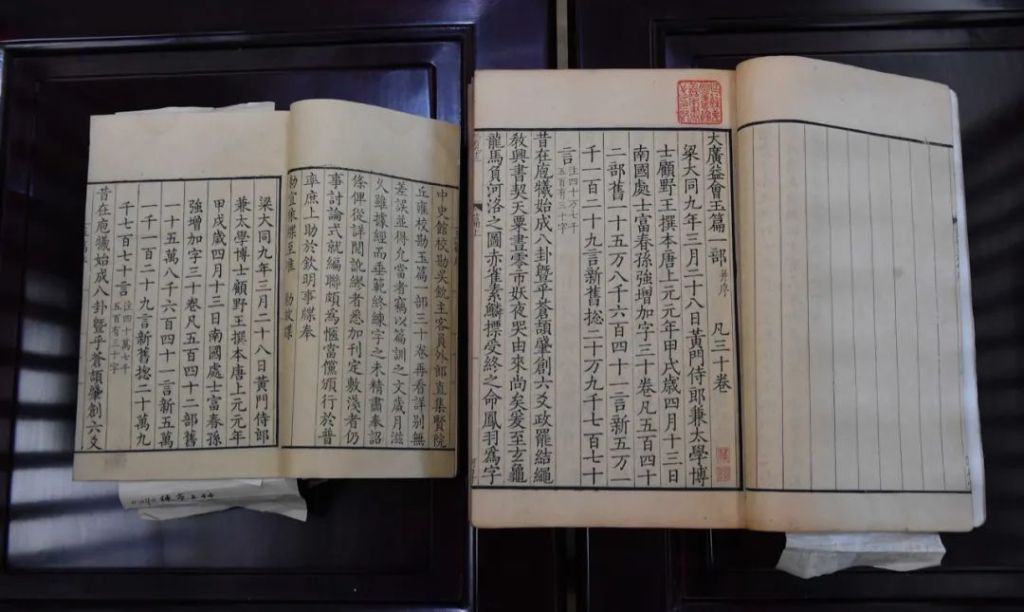 大廣益會玉篇一部 并序 凡三十卷
梁大同九年三月二十八日黃門侍郎兼太學博
士顧野王撰本唐上元元年甲戌歲四月十三日
南國處士富春孫強增加字三十卷凡五百四十
二部舊一十五万八千六百四十一言新五万一
千一百二十九言新舊揔二十万九千七百七十
言 注四十万七千五百有三十字
昔在庖犧始成八卦暨乎蒼頡肇創六爻政罷結繩
教興書契天粟晝零市妖夜哭由來尚矣爰至玄龜
龍馬負河洛之圖赤雀素鱗摽受終之命鳳羽爲字
中史館校勘吳銳主客員外郎直集賢院
丘雍校勘玉篇一部三十卷再看詳別無
差誤並得允當者竊以篇訓之文歲月滋
久雖據經而垂範終練字之未精肅奉詔
條俾從詳閱說終者悉加刊定敷淺者仍
事討論式就編聯頗爲愜當儻頒行於普
率庶上助於欽明事牒奉
勅宜依牒至准 勅故牒
梁大同九年三月二十八日黃門侍郎
兼太學博士顧野王撰本唐上元元年
甲戌歲四月十三日南國處士富春孫
強增加字三十卷凡五百四十二部舊
一十五萬八千六百四十一言新五萬
一千一百二十九言新舊揔二十萬九
千七百七十言 注四十萬七千五百有三十字
昔在庖犧始成八卦暨乎蒼頡肇創六爻